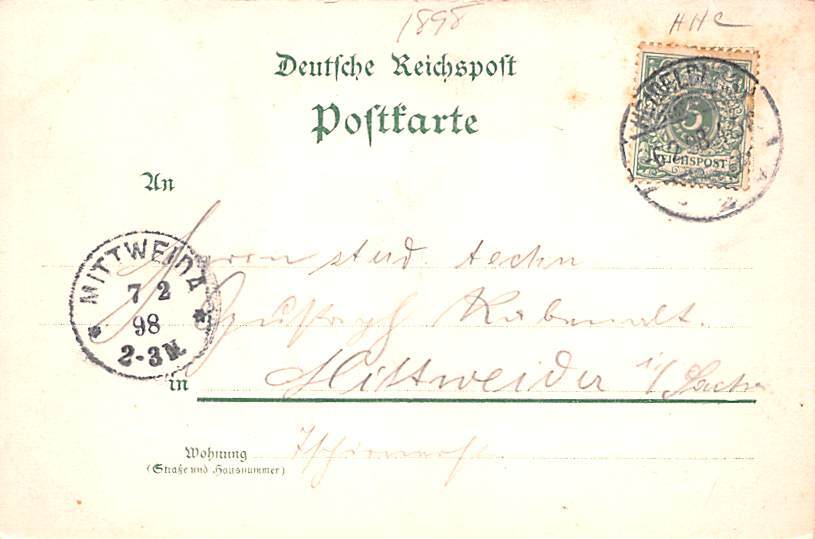 1898
HHC
Deutsche Reichspost
Postkarte
5
REICHSPOST
An
MITTWEIDA
7 2
98
2-3 N.
Herrn stud techn
Gustaph
in Mittweida i/ Sachs
Wohnung
(Straße und Hausnummer)